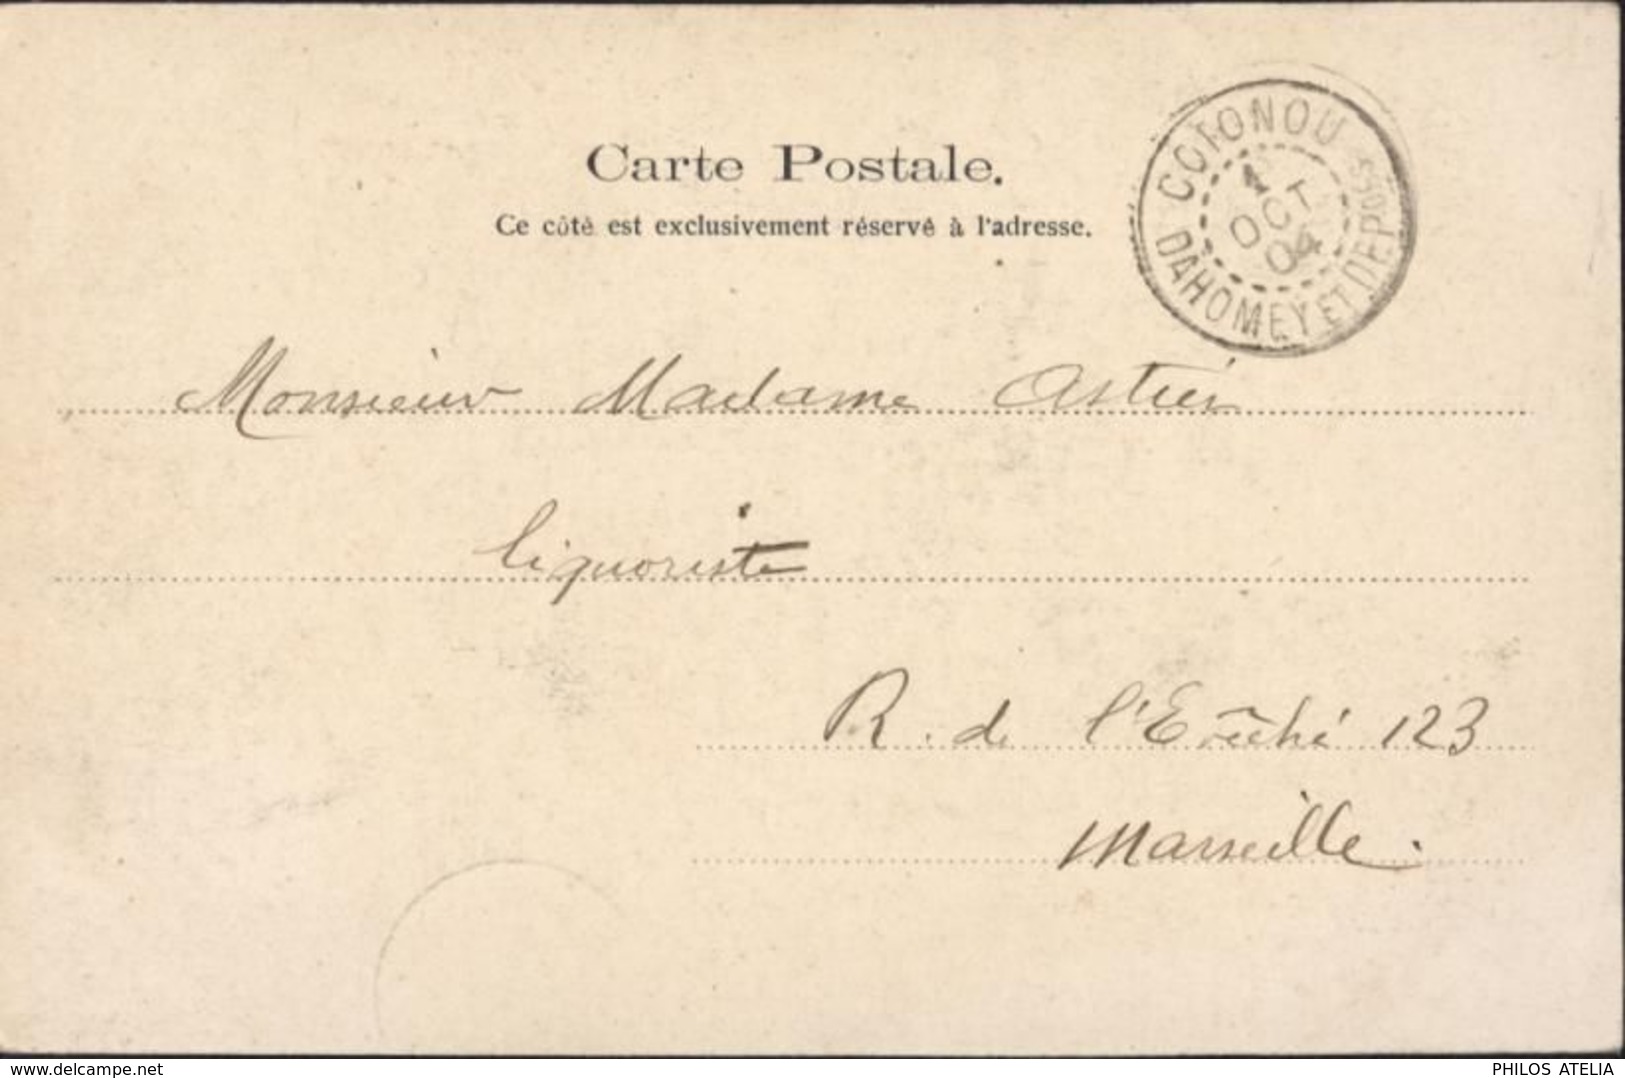 Carte Postale.
Ce côté est exclusivement réservé à l'adresse.
COTONOU
4
OCT
04
DAHOMEY ET DEP
Monsieur Madame Astier
liquoriste
R. de l'Evêché 123
Marseille.
delcampe.net
PHILOS ATELIA